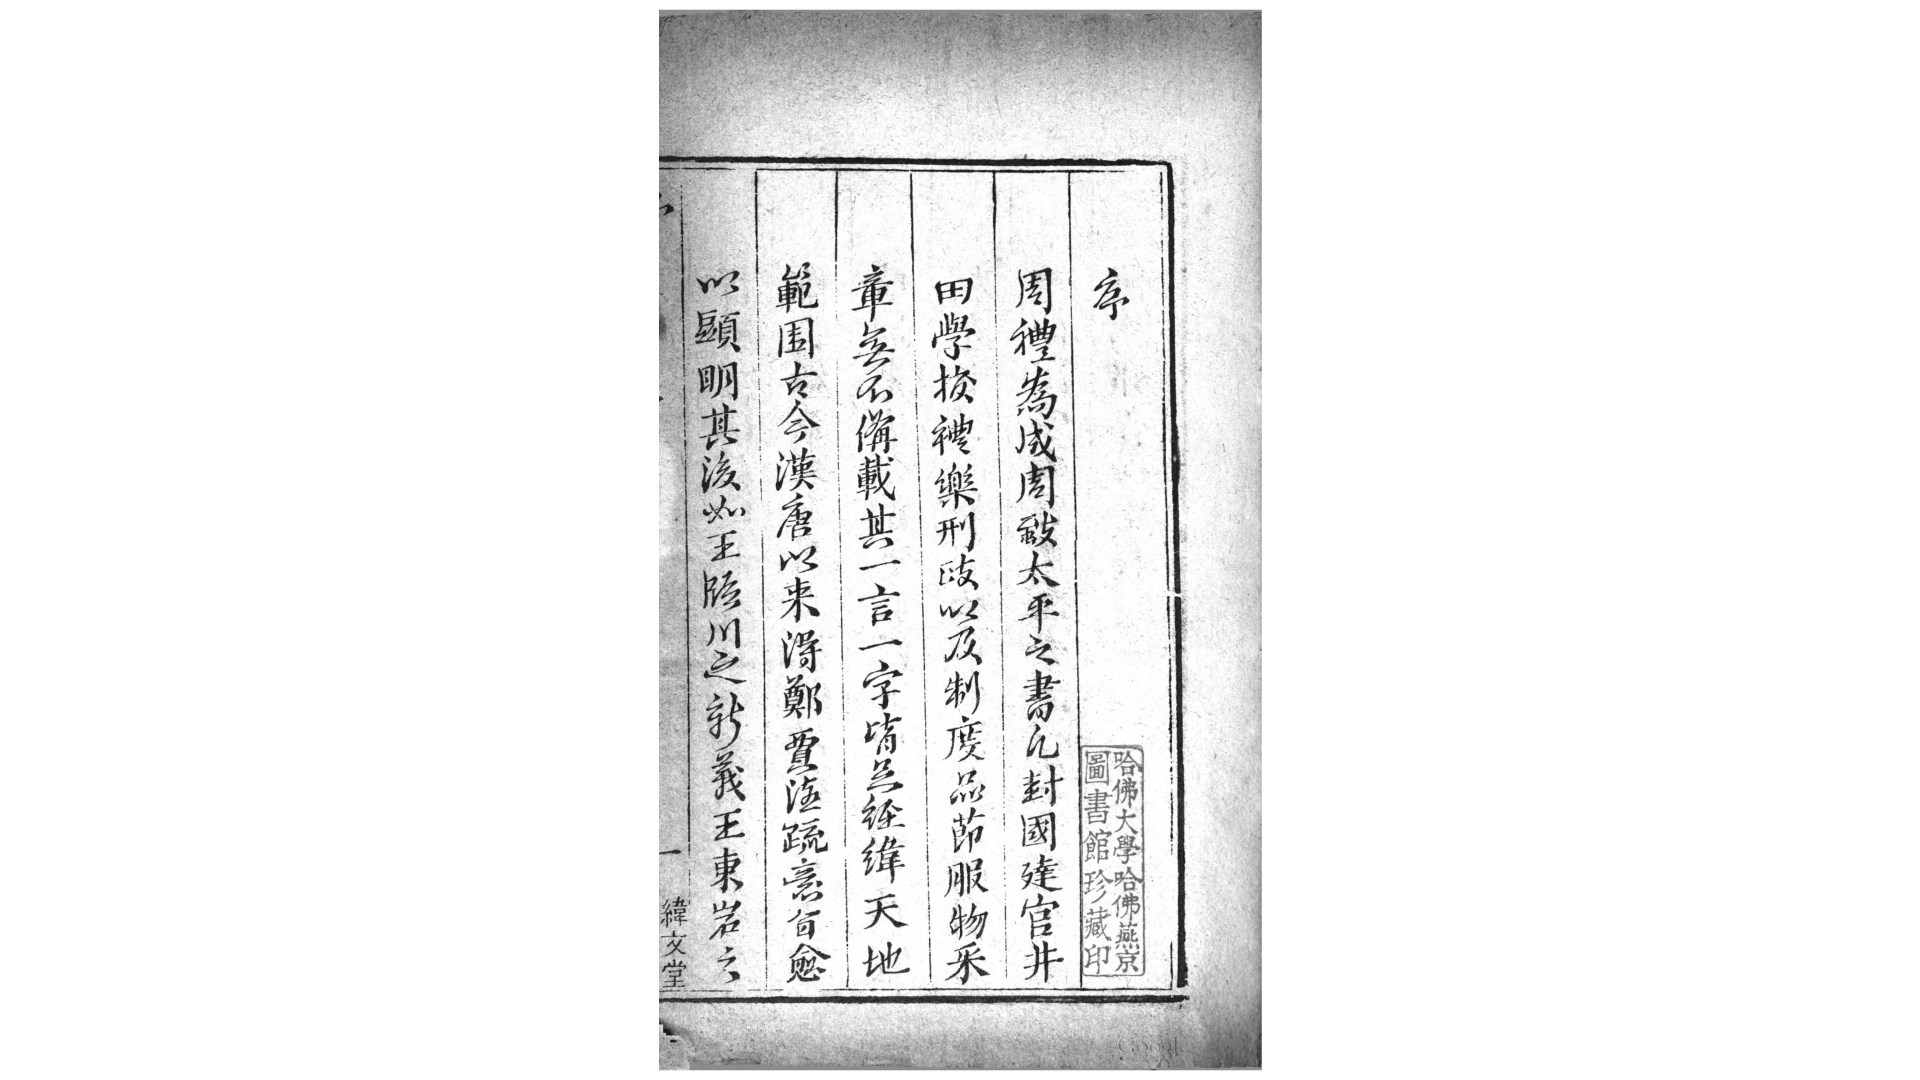 序
周禮為成周致太平之書凡封國建官井
田學校禮樂刑政以及制度品節服物采
章無不備載其一言一字皆足經緯天地
範围古今漢唐以来得鄭賈注疏意旨愈
以顕明其後如王臨川之新義王東岩之
一
緯文堂
哈佛大學哈佛燕京
圖書館珍藏印